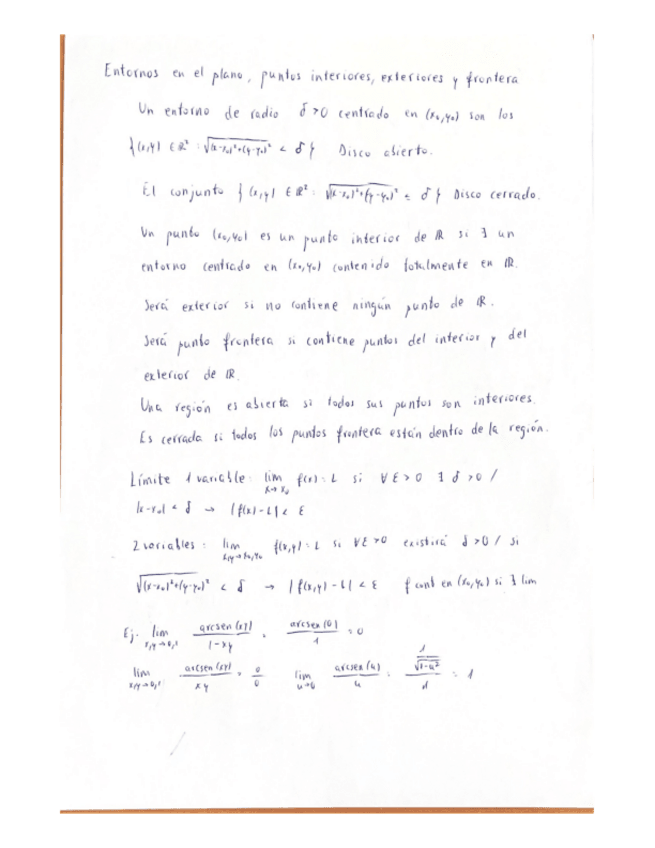 Entornos en el plano, puntos interiores, exteriores y frontera
Un entorno de radio δ>0 centrado en (x₀,y₀) son los
{(x,y) ∈ ℝ² : √((x-x₀)²+(y-y₀)²) < δ} Disco abierto.
El conjunto {(x,y) ∈ ℝ² : √((x-x₀)²+(y-y₀)²) ≤ δ} Disco cerrado.
Un punto (x₀,y₀) es un punto interior de ℝ si ∃ un
entorno centrado en (x₀,y₀) contenido totalmente en ℝ.
Será exterior si no contiene ningún punto de ℝ.
Será punto frontera si contiene puntos del interior y del
exterior de ℝ.
Una región es abierta si todos sus puntos son interiores.
Es cerrada si todos los puntos frontera están dentro de la región.
Límite 1 variable: lim x→x₀ f(x)=L si ∀ε>0 ∃ δ>0 /
|x-x₀| < δ → |f(x)-L| < ε
2 variables: lim x,y→x₀,y₀ f(x,y)=L si ∀ε>0 existirá δ>0 / si
√((x-x₀)²+(y-y₀)²) < δ → |f(x,y)-L| < ε f cont en (x₀,y₀) si ∃ lim
Ej. lim arcsen(xy)/(1-xy) = arcsen(0)/1 = 0
lim arcsen(xy)/xy = 0/0 lim u→0 arcsen(u)/u = (1/√(1-u²))/1 = 1